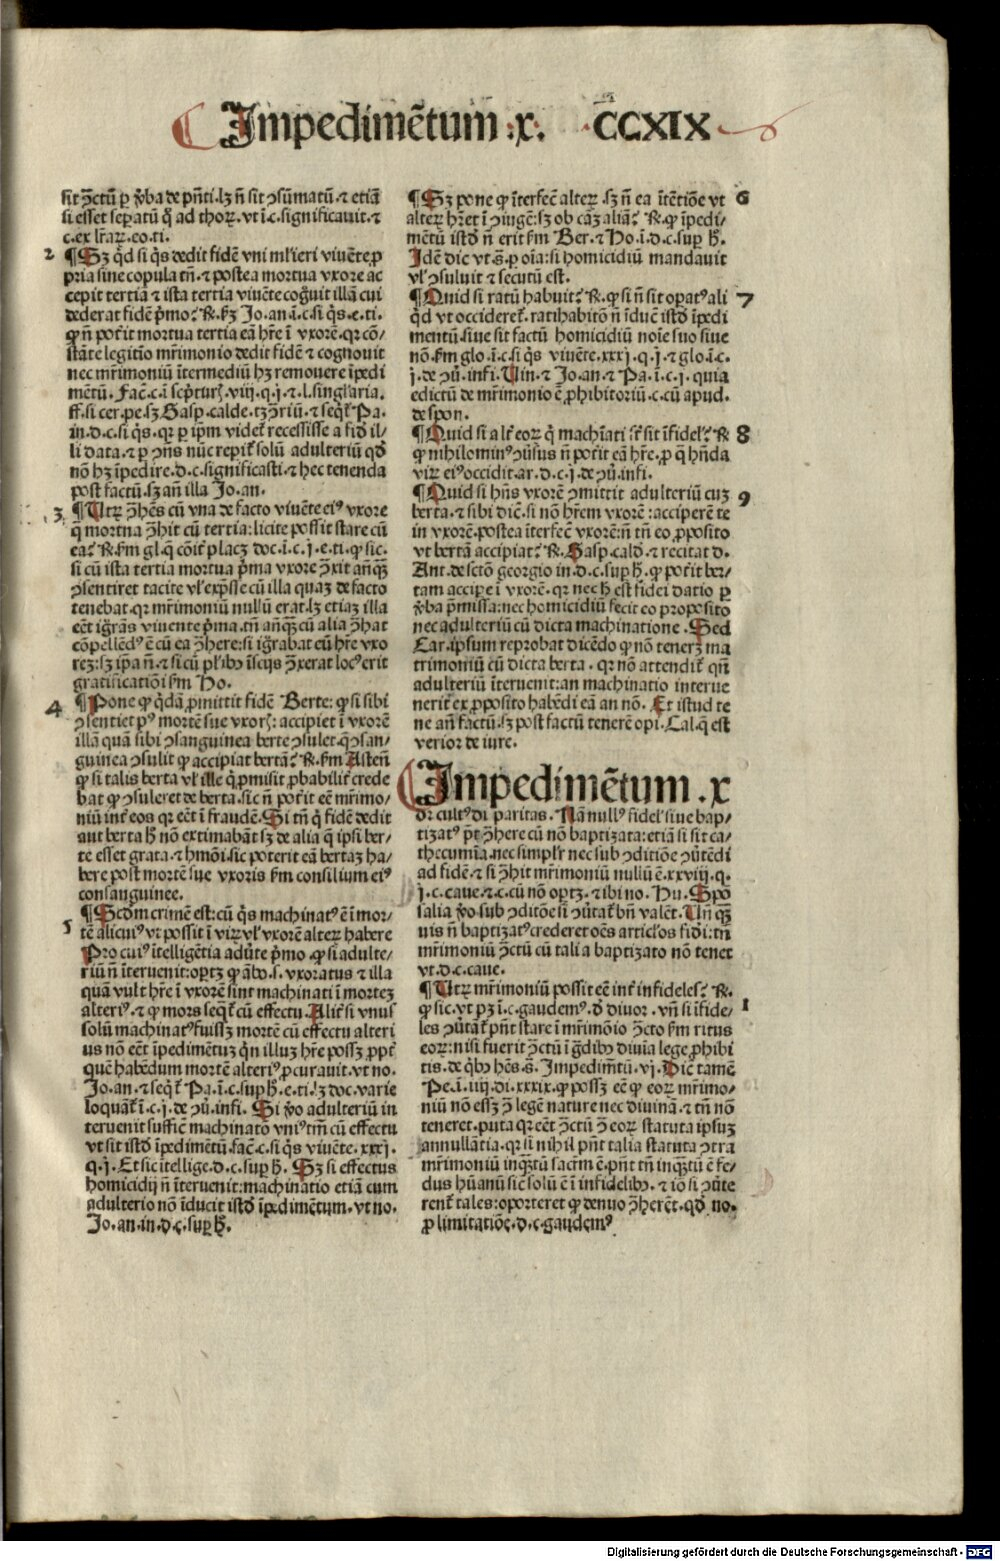 Impedimētum .x. CCXIX
sit ꝯtractū ꝑ v̄ba de pn̄ti.lꝫ nō sit ꝯsūmatū.⁊ etiā
si esset sepatū q̇ ad thoꝝ.vt ī.c.significauit.⁊
c.ex lr̄aꝝ.eo.ti.
2 ¶Sꝫ qd̄ si q̇s dedit fidē vni ml̓ieri viuēte ꝓ
pria sine copula tn̄.⁊ postea mortua vxore ac
cepit tertiā ⁊ ista tertia viuēte cogͦuit illā cui
dederat fidē pͥmo:̓ ℞.ẜm Jo.an.ī.c.si q̇s.e.ti.
ꝙ nō pot̓it mortua tertia eā hr̄e ī vxorē.qꝛ cō-
stāte legitīo mr̄imonio dedit fidē ⁊ cognouit
nec mr̄imoniū intermediū hꝫ remouere īpedi
mētū. Fac̄.c.ā sc̄pturā.viij.q.j.⁊.l.singlaria.
ff.si cer.pe.sꝫ Gasp.calde. ⁊ seq̇t̄ Pa.
in.d.c.si q̇s.qꝛ ꝑ ip̄m videt̄ recessisse a fidͦ il/
li data.⁊ ꝑ ꝯn̄s nūc repit̄ solū adulteriū qd̄
nō hꝫ īpedire.d.c.significasti.⁊ hec tenenda
post factū.sꝫ an̄ illa Jo.an.
3 ¶Vtꝝ ꝯhēs cū vna de facto viuēte eiꝰ vxore
q̄ mortua ꝯhit cū tertia:licite possit stare cū
ea:̓ ℞.ẜm gl.q̄ cōit̓ placꝫ doc.ī.c.j.e.ti.ꝙ sic.
si cū ista tertia mortua pͥma vxore ꝯxit an̄qꝫ̄
ꝯsentiret tacite vl̓ exp̄sse cū illa quaꝫ de facto
tenebat.qꝛ mr̄imoniū nullū erat.lꝫ etiaꝫ illa
eēt igͣrās viuente pͥma.tn̄ an̄qꝫ̄ cū alia ꝯhat
cōpellēdꝰ ē cū ea ꝯhere:si igͣrabat eū hr̄e vxo
reꝫ:sꝫ ip̄a nō.⁊ si cū pl̓ibꝰ īscijs ꝯxerat locꝰ erit
gratificatiōi ẜm Ho.
4 ¶Pone ꝙ q̇dā ꝓmittit fidē Berte:ꝙ si sibi
ꝯsentiet pꝰ mortē sue vxorꝭ: accipiet ī vxorē
illā quā sibi ꝯsanguinea berte ꝯsulet.q̄ ꝯsan/
guinea ꝯsulit ꝙ accipiat bertā:̓ ℞.ẜm Asten̄
ꝙ si talis berta vl̓ ille q̇ ꝓmisit ꝓbabilit̓ crede
bat ꝙ ꝯsuleret de berta.sic nō pot̓it eē mr̄imo/
niū int̓ eos qꝛ eēt ī fraudē. Si tn̄ q̇ fidē dedit
aut berta h̄ nō extimabāt sꝫ de alia q̄ ipsi ber/
te esset grata.⁊ hmōi.sic poterit eā bertaꝫ ha/
bere post mortē sue vxoris ẜm consilium eiꝰ
consanguinee.
5 ¶Scd̄m crimē est:cū q̇s machinatꝰ ē ī mor/
tē alicuiꝰ vt possit ī viꝝ vl̓ vxorē alteꝝ habere
Pro cuiꝰ ītelligētia adūte pͥmo.ꝙ si adulte/
riū nō īteruenit:oꝑtꝫ ꝙ ābo.s.vxoratus ⁊ illa
quā vult hr̄e ī vxorē sint machinati ī morteꝫ
alteriꝰ.⁊ ꝙ mors seq̇t̄ cū effectu. Alit̓ si vnus
solū machinatꝰ fuissꝫ mortē cū effectu alteri
us nō eēt īpedimētuꝫ q̇n illuꝫ hr̄e possꝫ ꝓpt̓
quē habēdum mortē alteriꝰ ꝓcurauit.vt no.
Jo.an.⁊ seq̇t̄ Pa.ī.c.sup h̄.e.ti.lꝫ doc.varie
loquāt̄ ī.c.j.de ꝯū.infi. Si v̓o adulteriū in
teruenit suffic̄ machinatō vniꝰ tm̄ cū effectu
vt sit istd̄ īpedimētū.fac̄.c.si q̇s viuēte.xxxj.
q.j. Et sic ītellige.d.c.sup h̄. Sꝫ si effectus
homicidij nō īteruenit:machinatio etiā cum
adulterio nō īducit istd̄ īpedimētum.vt no.
Jo.an.in.d.c.sup h̄.
¶Sꝫ pone ꝙ īterfecē alteꝝ.sꝫ nō ea ītētiōe vt 6
alteꝝ hr̄et ī ꝯiugē:sꝫ ob cāꝫ aliā:̓ ℞.ꝙ īpedi/
mētū istd̄ nō erit ẜm Ber.⁊ Ho.ī.d.c.sup h̄.
Idē dic vt.s̄.ꝑ oīa:si homicidiū mandauit
vl̓ ꝯsuluit ⁊ secutū est.
¶Quid si ratū habuit:̓ ℞.ꝙ si nō sit oꝑatꝰ ali 7
q̇d vt occideret̄.ratihabitō nō īducē istd̄ īpedi
mentū.siue sit factū homicidiū noīe suo siue
nō.ẜm glo.ī.c.si q̇s viuēte.xxxj.q.j.⁊ glo.ī.c.
j.de ꝯū.infi. Uin.⁊ Jo.an.⁊ Pa.ī.c.j. quia
edictū de mr̄imonio ē ꝓhibitoriū.c.cū apud.
de spon.
¶Quid si alt̓ eoꝝ q̇ machīati sr̄ sit īfidel̓:̓ ℞ 8
ꝙ nihilominꝰ ꝯūsus nō pot̓it eā hr̄e.ꝓ q̄ hn̄da
viꝝ eiꝰ occidit.ar.d.c.j.de ꝯū.infi.
¶Quid si hn̄s vxorē ꝯmittit adulteriū cuꝫ 9
berta.⁊ sibi dic̄.si nō hr̄em vxorē:acciperē te
in vxorē.postea īterfecē vxorē:nō tn̄ eo ꝓposito
vt bertā accipiat:̓ ℞. Gasp.cald̄.⁊ recitat d.
Ant.de sctō georgio in.d.c.sup h̄.ꝙ pot̓it ber/
tam accipe ī vxorē.qꝛ nec h̄ est fidei datio ꝑ
v̄ba pͥmissa:nec homicidiū fecit eo proposito
nec adulteriū cū dicta machinatione. Sed
Car.ipsum reprobat dicēdo ꝙ nō tenerꝫ ma
trimoniū cū dicta berta. qꝛ nō attendit̄ qn̄
adulteriū īteruenit:an machinatio interue
nerit ex ꝓposito habēdi eā an nō. Et istud te
ne an̄ factū.sꝫ post factū tenerē opi. Cal.q̄ est
verior de iure.
Impedimētum .x
dr̄ cultꝰ di paritas. Nā nullꝰ fidel̓ siue bap/
tizatꝰ pōt ꝯhere cū nō baptizata:etiā si sit ca/
thecumīa.nec simplr̄ nec sub ꝯditiōe ꝯūtēdi
ad fidē.⁊ si ꝯhit mr̄imoniū nullū ē.xxviij.q.
j.c.caue.⁊.c.cū nō oꝑtꝫ.⁊ ibi no. Hu. Spō
salia v̓o sub ꝯditōe si ꝯūtat̄ bn̄ valēt. Un̄ qꝫ̄
uis nō baptizatꝰ crederet oēs articl̓os fidi:tn̄
mr̄imoniū ꝯtctū cū tali a baptizato nō tenet
vt.d.c.caue.
¶Vtꝝ mr̄imoniū possit eē int̓ infideles:̓ ℞. 1
ꝙ sic.vt pꝫ ī.c.gaudemꝰ.d̄ diuor. vn̄ si īfide/
les ꝯūtāt̄ pn̄t stare ī mr̄imōio ꝯtcto ẜm ritus
eoꝝ:nisi fuerit ꝯtctū ī gͣdibꝰ diuīa lege ꝓhibi
tis.de q̇bꝰ hēs.s̄. Impedimētū.vj. Dic̄ tamē
Pe.ī.iiij.di.xxxix.ꝙ possꝫ eē ꝙ eoꝝ mr̄imo/
niū nō essꝫ ꝯ̄ legē nature nec diuinā.⁊ tn̄ nō
teneret.puta qꝛ eēt ꝯtctū ꝯ̄ eoꝝ statuta ipsuꝫ
annullātia.qꝛ si nihil pn̄t talia statuta ꝯtra
mr̄imoniū inqꝫtū sacrm̄ ē.pn̄t tn̄ inqꝫtū ē fe/
dus hūanū sic̄ solū ē ī infidelibꝰ.⁊ iō si ꝯūte
rent̄ tales:oporteret ꝙ denuo ꝯherēt.qd̄ no.
ꝓ limitatiōe.d.c.gaudemꝰ
Digitalisierung gefördert durch die Deutsche Forschungsgemeinschaft - DFG